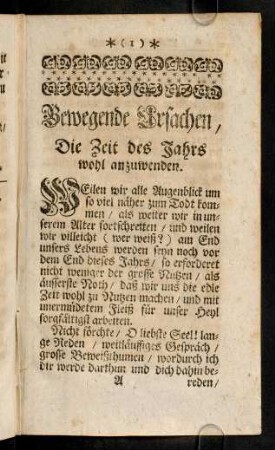 *(1)*
Bewegende Ursachen,
Die Zeit des Jahrs
wohl anzuwenden.
WEilen wir alle Augenblick um
so viel näher zum Todt kom-
men / als weiter wir in un-
serem Alter fortschretten / und weilen
wir villeicht (wer weiß?) am End
unsers Lebens werden seyn noch vor
dem End dieses Jahrs / so erforderet
nicht weniger der grosse Nutzen / als
äusserste Noth / daß wir uns die edle
Zeit wohl zu Nutzen machen / und mit
unermüdetem Fleiß für unser Heyl
sorgfältigst arbeiten.
Nicht förchte / O liebste Seel! lan-
ge Reden / weitläuffiges Gespräch /
grosse Beweißthumen / wordurch ich
dir werde darthun und dich dahin be-
A reden /